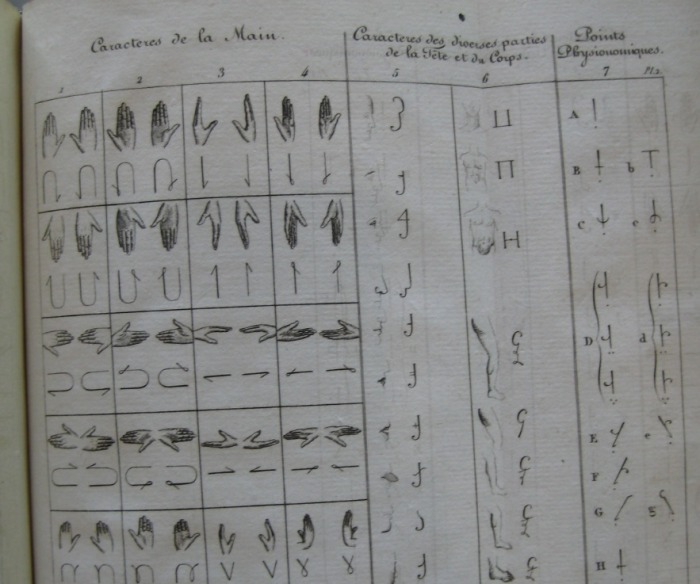 Caracteres de la Main.
Caracteres des diverses parties
de la Tête et du Corps.
Points
Physionomiques.
1 2 3 4 5 6 7 Pl.2.
A
B b
C c
D d
E e
F
G g
H